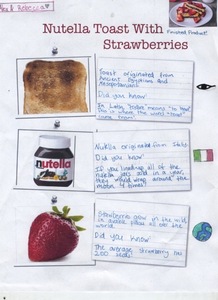 & Rebecca
Finished Product!
Nutella Toast With
Strawberries
Toast originated from
Ancient Egyptians and
Mesopotamians
Did you know
In Latin, "tostus" means "to
This is where the word "toast"
came from!
nutella
Nutella originated from Italy
Did you know
If you lined up all of the
nutella jars sold in a year,
they would wrap around the
4 times!
Strawberries grow in the wild
in places all over the
world.
Did you know
The average strawberry has
200 seeds!